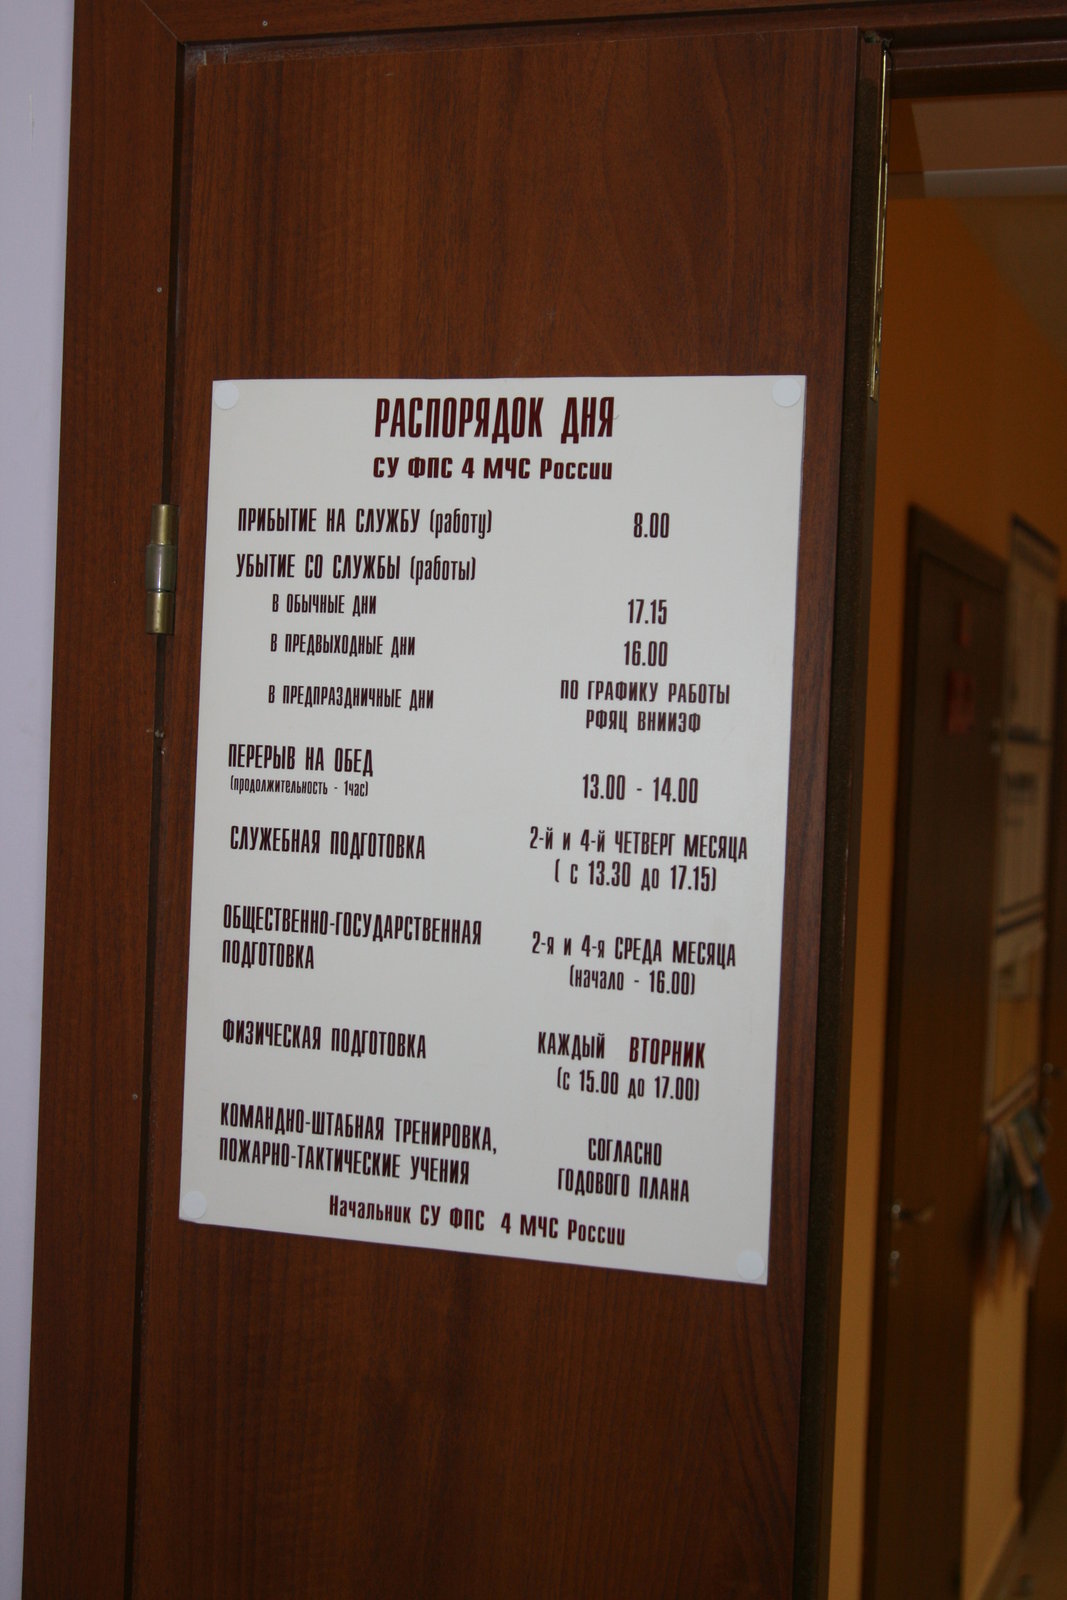 РАСПОРЯДОК ДНЯ
СУ ФПС 4 МЧС России
ПРИБЫТИЕ НА СЛУЖБУ (работу) 8.00
УБЫТИЕ СО СЛУЖБЫ (работы)
В ОБЫЧНЫЕ ДНИ 17.15
В ПРЕДВЫХОДНЫЕ ДНИ 16.00
В ПРЕДПРАЗДНИЧНЫЕ ДНИ ПО ГРАФИКУ РАБОТЫ
РФЯЦ ВНИИЭФ
ПЕРЕРЫВ НА ОБЕД
(продолжительность - 1час) 13.00 - 14.00
СЛУЖЕБНАЯ ПОДГОТОВКА 2-й и 4-й ЧЕТВЕРГ МЕСЯЦА
( с 13.30 до 17.15)
ОБЩЕСТВЕННО-ГОСУДАРСТВЕННАЯ
ПОДГОТОВКА 2-я и 4-я СРЕДА МЕСЯЦА
(начало - 16.00)
ФИЗИЧЕСКАЯ ПОДГОТОВКА КАЖДЫЙ ВТОРНИК
(с 15.00 до 17.00)
КОМАНДНО-ШТАБНАЯ ТРЕНИРОВКА,
ПОЖАРНО-ТАКТИЧЕСКИЕ УЧЕНИЯ СОГЛАСНО
ГОДОВОГО ПЛАНА
Начальник СУ ФПС 4 МЧС России